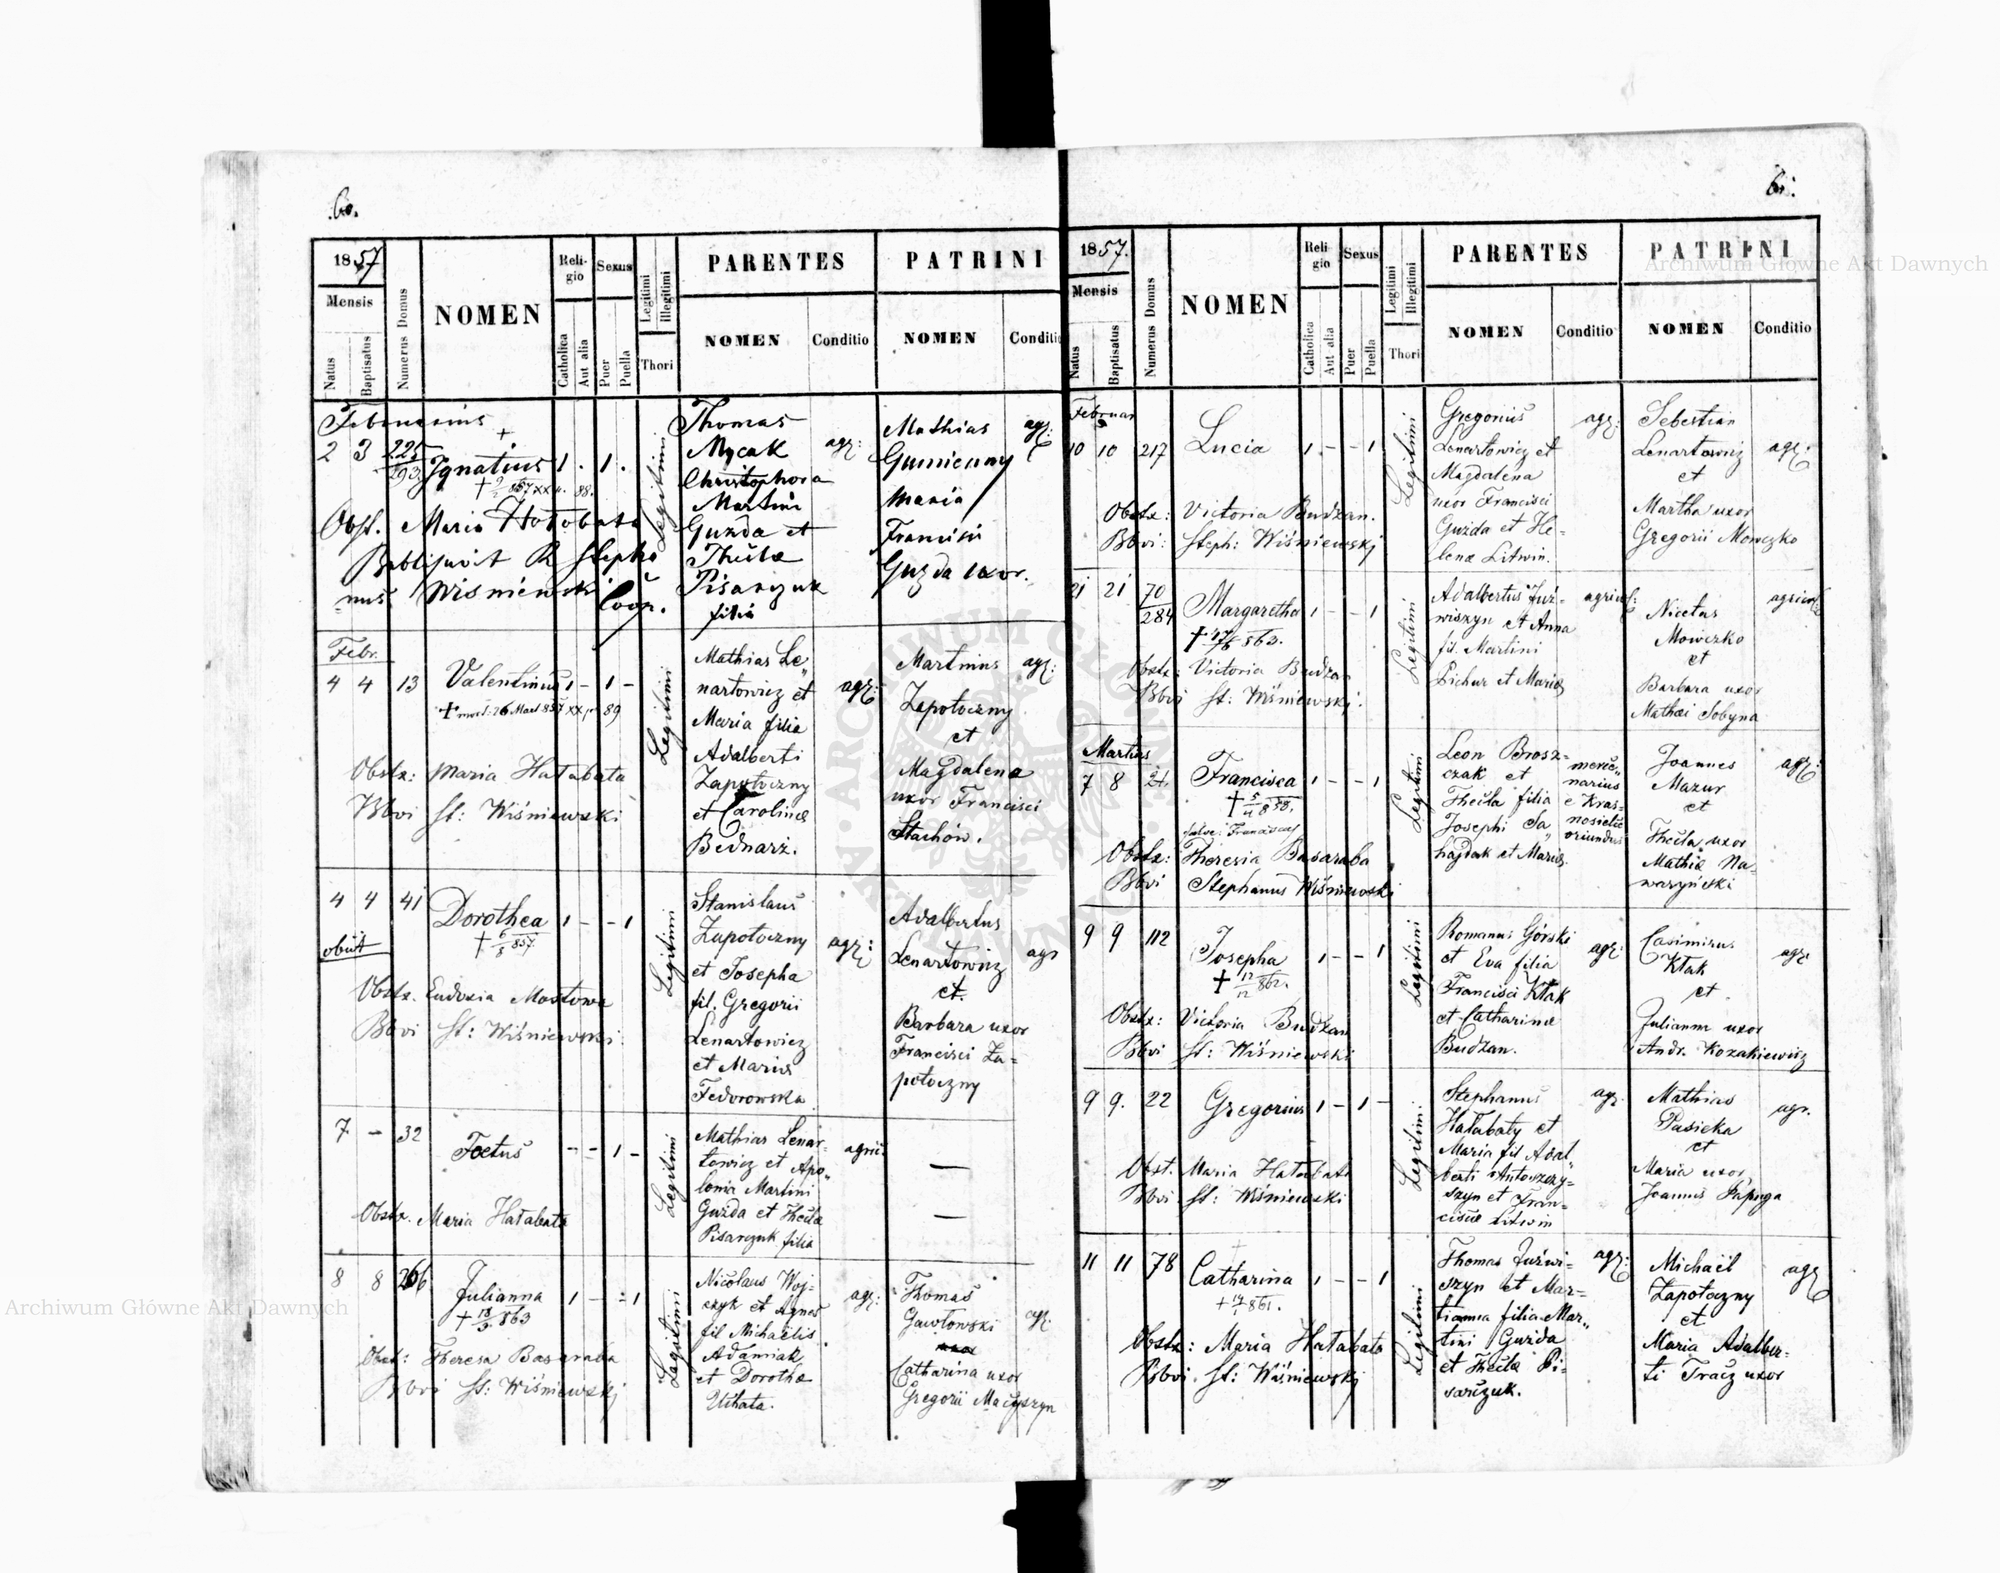 60.
1857
Mensis
Natus
Baptisatus
Numerus Domus
NOMEN
Religio
Catholica
Aut alia
Sexus
Puer
Puella
Legitimi
Illegitimi
Thori
PARENTES
NOMEN
Conditio
PATRINI
NOMEN
Conditio
Februarius
2 3 225
293
Ignatius 1 . 1 .
Legitimi
Thomas
Mycak
Christophora
Martini
Guzda et
Theclæ
Pisarczuk
filia
agr:
Mathias
Gumienny
Maria
Francisci
Guzda uxor.
agr:
Obst. Maria Hołobata
Babtisavit R Stepha
nus Wisniewski Coop.
Febr.
4 4 13 Valentinus 1 - 1 -
+ mort: 26 Mart 857 XX p 89
Legitimi
Mathias Le„
nartowicz et
Maria filia
Adalberti
Zapotoczny
et Carolinæ
Bednarz.
agr:
Martinus
Zapotoczny
et
Magdalena
uxor Francisci
Stachów.
agr:
Obstx: Maria Hałabata
Bbvi St: Wiśniewski
4 4 41 Dorothea 1 - - 1
+ 6/8 857
obiit
Legitimi
Stanislaus
Zapotoczny
et Josepha
fil. Gregorii
Lenartowicz
et Mariæ
Fedorowska
agr:
Adalbertus
Lenartowicz
et.
Barbara uxor
Francisci Za-
potoczny
agr
Obstx. Eudoxia Mostowa
Bbvi St: Wiśniewski
7 - 32 Foetus - - 1 -
Legitimi
Mathias Lenar-
towicz et Apo„
lonia Martini
Guzda et Theclæ
Pisarczuk filia
agric.
—
—
Obstx. Maria Hałabata
8 8 266 Julianna 1 - - 1
+ 18/3 863
Legitimi
Nicolaus Woj-
czyk et Agnes
fil Michaelis
Adamiak
et Dorothæ
Uchata.
agr:
Thomas
Gawłowski
Catharina uxor
Gregorii Maćyszyn
agr.
Obst: Theresa Basaraba
Bbvi St: Wiśniewskj
61.
1857.
Mensis
Natus
Baptisatus
Numerus Domus
NOMEN
Religio
Catholica
Aut alia
Sexus
Puer
Puella
Legitimi
Illegitimi
Thori
PARENTES
NOMEN
Conditio
PATRINI
NOMEN
Conditio
Februar
10 10 217 Lucia 1 - - 1
Legitimi
Gregorius
Lenartowicz et
Magdalena
uxor Francisci
Guzda et He-
lenæ Litwin.
agr:
Sebestian
Lenartowicz
et
Martha uxor
Gregorii Mowczko
agr.
Obstx: Victoria Budzan.
Bbvi: Steph: Wiśniewskj
21 21 70
284
Margaretha 1 - - 1
Legitimi
Adalbertus Juź-
wiszyn et Anna
fil. Martini
Pichur et Mariæ
agricol:
Nicetas
Mowczko
et
Barbara uxor
Mathæi Sobyna
agricol:
Obstx: Victoria Budzan
Bbvi St. Wiśniewskj.
Martius
7 8 21. Francisca 1 - - 1
Legitimi
Leon Brosz-
czak et
Thecla filia
Josephi Sa„
hajdak et Mariæ.
merce„
narius
e Kras-
nosielce
oriundus
Joannes
Mazur
et
Thecla uxor
Mathiæ Na-
warzyński
agr:
Obstx: Theresia Basaraba
Bbvi Stephanus Wiśniewski
9 9 112 Josepha 1 - - 1
+ 17/12 862.
Legitimi
Romanus Górski
et Eva filia
Francisci Kłak
et Catharinæ
Budzan.
agr:
Casimirus
Kłak
et
Julianna uxor
Andr. Kozakiewicz
agr.
Obstx: Victoria Budzan
Bbvi St: Wiśniewski
9 9. 22 Gregorius 1 - 1 -
Legitim.
Stephanus
Hałabaty et
Maria fil Adal„
berti Antoszczy-
szyn et Fran-
ciscæ Litwin
agr.
Mathias
Pasieka
et
Maria uxor
Joannis Papuga
agr.
Obst. Maria Hałabata
Bbvi St: Wiśniewski
11 11 78 Catharina 1 - - 1
+ 14/1 861.
Legitimi
Thomas Juźwi-
szyn et Mar-
tianna filia Mar„
tini Guzda
et Theclæ Pi-
sarczuk.
agr:
Michaël
Zapotoczny
et
Maria Adalber-
ti Tracz uxor
agr
Obstx: Maria Hałabata
Bbvi. St: Wiśniewskj
Archiwum Główne Akt Dawnych
Archiwum Główne Akt Dawnych
ARCHIWUM GŁÓWNE AKT DAWNYCH